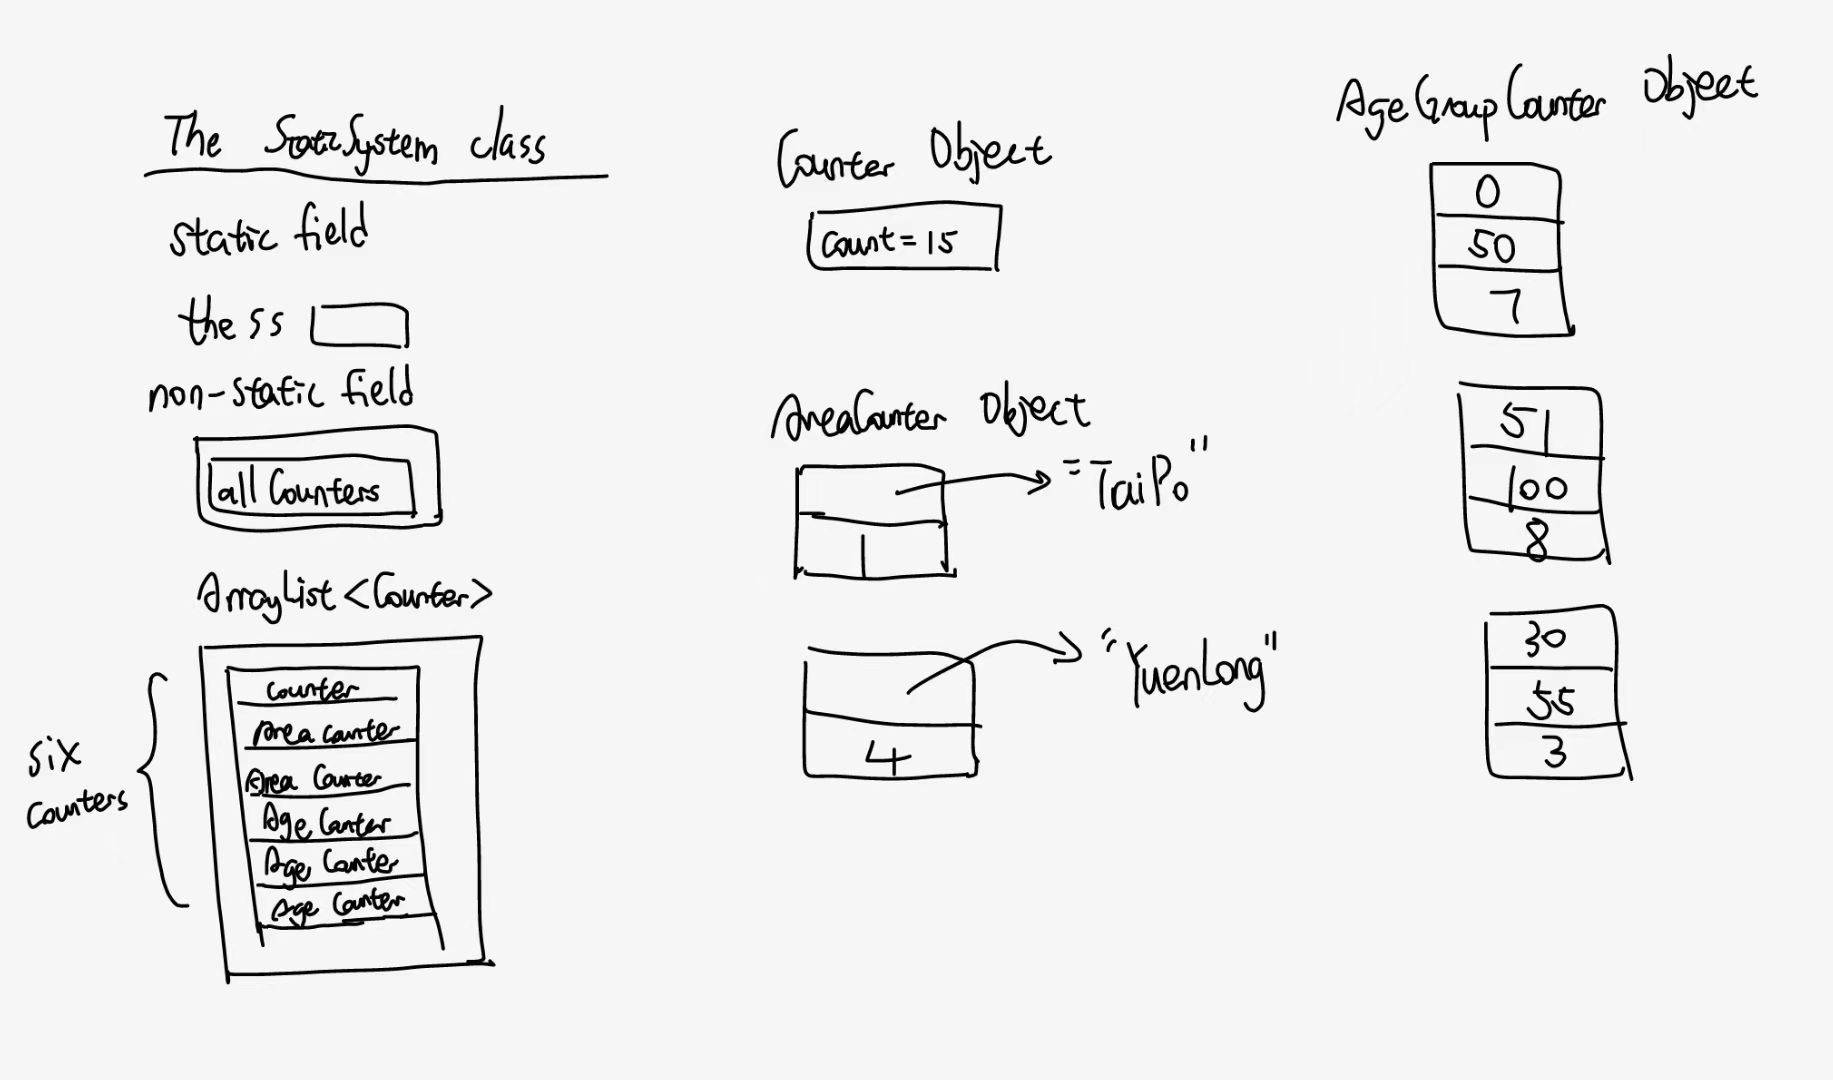 The StatsSystem class
static field
the ss
non-static field
all Counters
ArrayList <Counter>
six
counters
Counter
Area counter
Area Counter
Age Counter
Age Counter
Age Counter
Counter Object
count = 15
AreaCounter Object
"TaiPo"
1
"YuenLong"
4
AgeGroupCounter Object
0
50
7
51
100
8
30
55
3